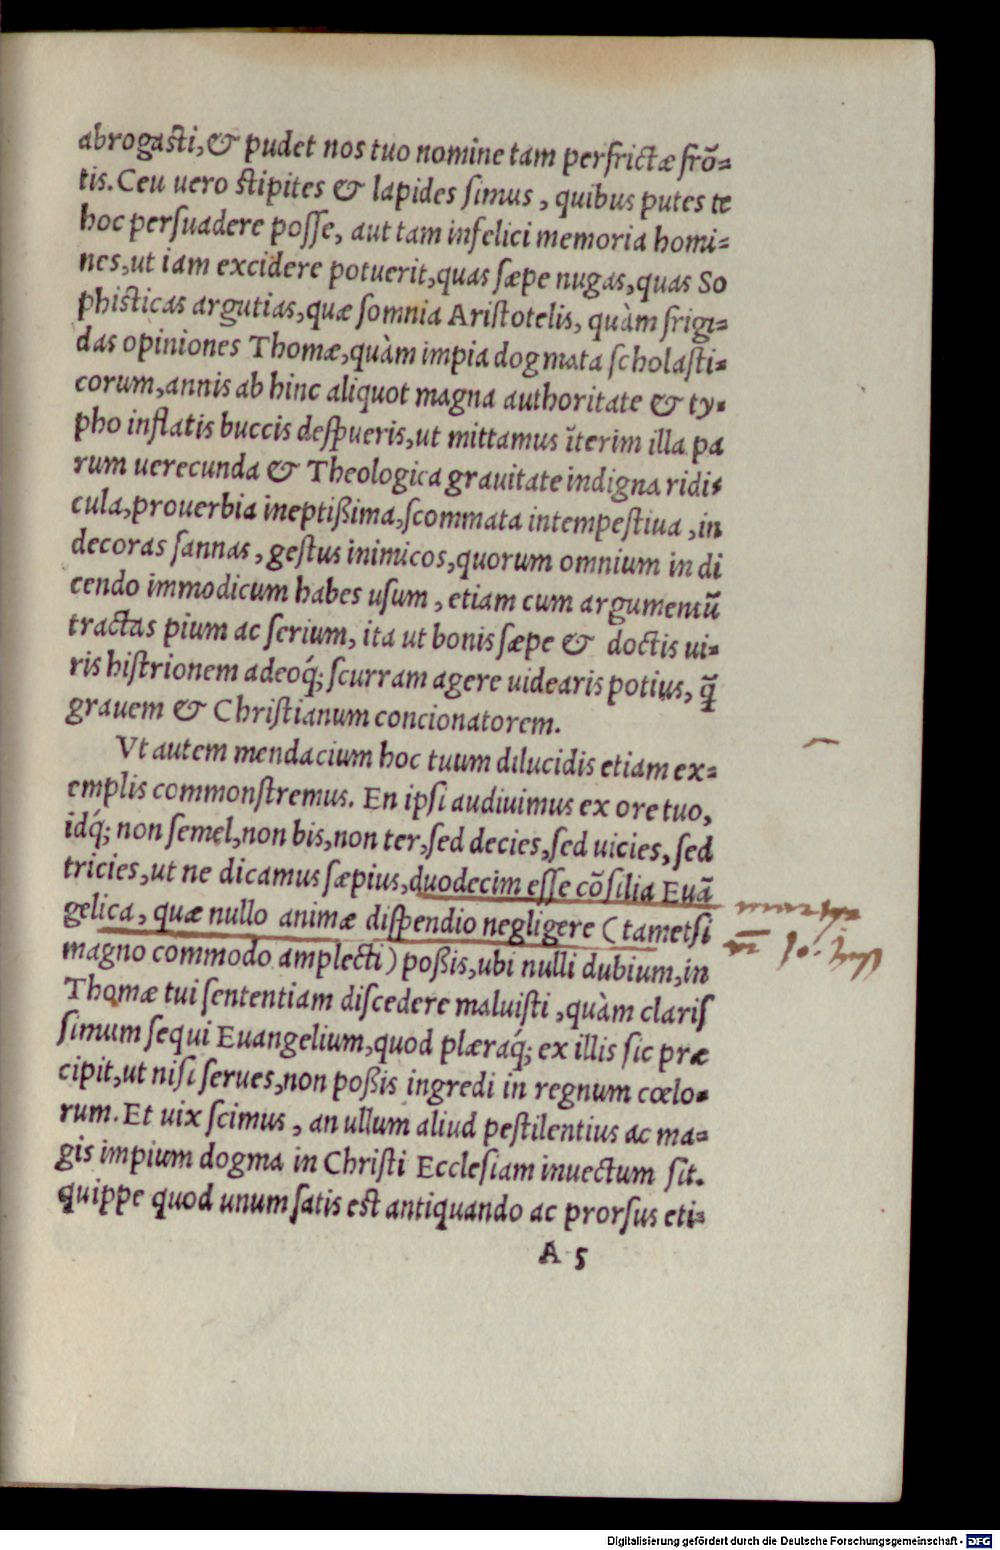 abrogasti, & pudet nos tuo nomine tam perfrictæ frõ-
tis. Ceu uero stipites & lapides ſimus, quibus putes te
hoc perſuadere poſſe, aut tam infelici memoria homi-
nes, ut iam excidere potuerit, quas ſæpe nugas, quas So
phisticas argutias, quæ ſomnia Ariſtotelis, quàm frigi-
das opiniones Thomæ, quàm impia dogmata ſcholaſti-
corum, annis ab hinc aliquot magna authoritate & ty-
pho inflatis buccis deſpueris, ut mittamus ĩterim illa pa
rum uerecunda & Theologica grauitate indigna ridi-
cula, prouerbia ineptißima, ſcommata intempeſtiua, in
decoras ſannas, geſtus inimicos, quorum omnium in di
cendo immodicum habes uſum, etiam cum argumentũ
tractas pium ac ſerium, ita ut bonis ſæpe & doctis ui-
ris hiſtrionem adeoq́; ſcurram agere uidearis potius, q̃
grauem & Chriſtianum concionatorem.
Vt autem mendacium hoc tuum dilucidis etiam ex-
emplis commonſtremus. En ipſi audiuimus ex ore tuo,
idq́; non ſemel, non bis, non ter, ſed decies, ſed uicies, ſed
tricies, ut ne dicamus ſæpius, duodecim eſſe cõſilia Euã
gelica, quæ nullo animæ diſpendio negligere (tametſi
magno commodo amplecti) poßis, ubi nulli dubium, in
Thomæ tui ſententiam diſcedere maluiſti, quàm clariſ
ſimum ſequi Euangelium, quod plæraq́; ex illis ſic præ
cipit, ut niſi ſerues, non poßis ingredi in regnum cœlo-
rum. Et uix ſcimus, an ullum aliud peſtilentius ac ma-
gis impium dogma in Chriſti Eccleſiam inuectum ſit.
quippe quod unum ſatis eſt antiquando ac prorſus eti-
A 5
Digitalisierung gefördert durch die Deutsche Forschungsgemeinschaft - DFG